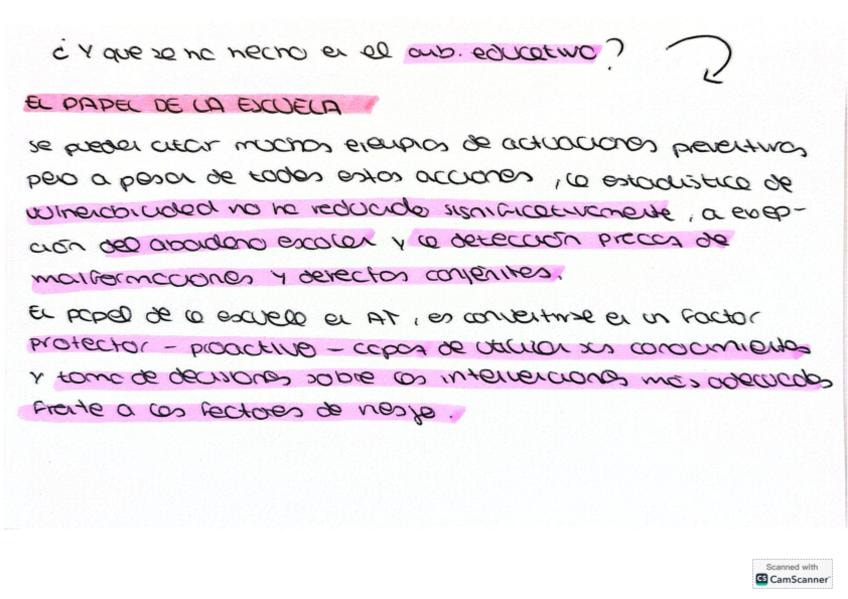 ¿Y que se ha hecho en el amb. educativo?
EL PAPEL DE LA ESCUELA
se pueden citar muchos ejemplos de actuaciones preventivas
pero a pesar de todas estas acciones, la estadística de
vulnerabilidad no ha reducido significativamente, a excep-
ción del abandono escolar y la detección precoz de
malformaciones y defectos congénitos.
El papel de la escuela en AT, es convertirse en un factor
protector - proactivo - capaz de utilizar sus conocimientos
y toma de decisiones sobre las intervenciones más adecuadas
frente a los factores de riesgo.
Scanned with
CS CamScanner